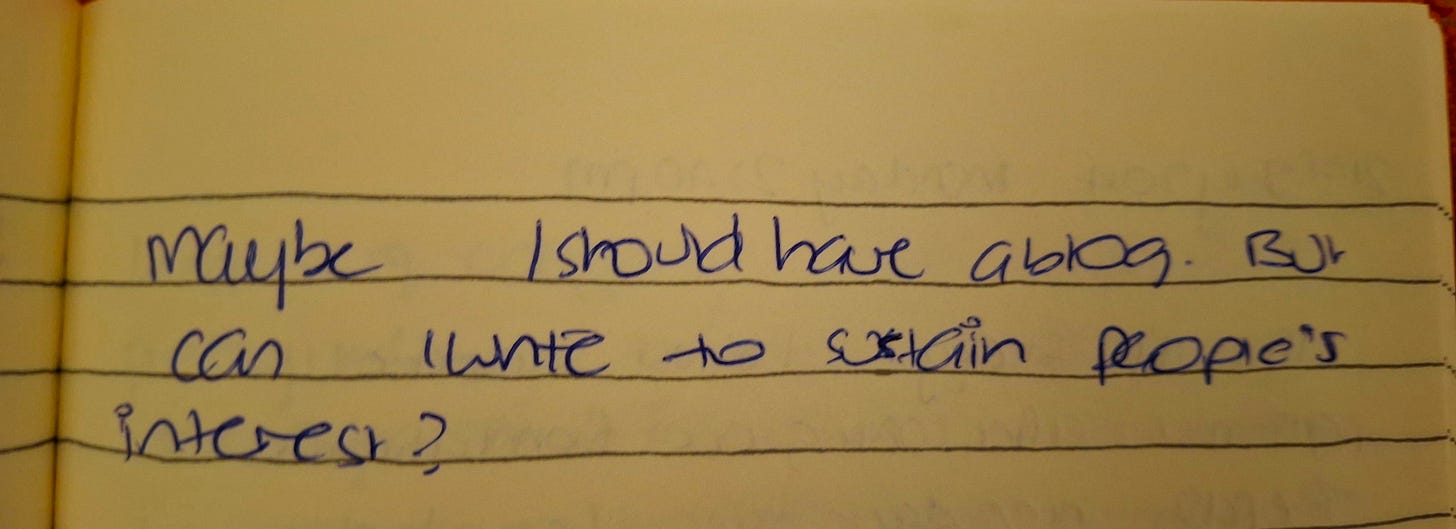 Maybe I should have a blog. But
can I write to sustain people's
interest?